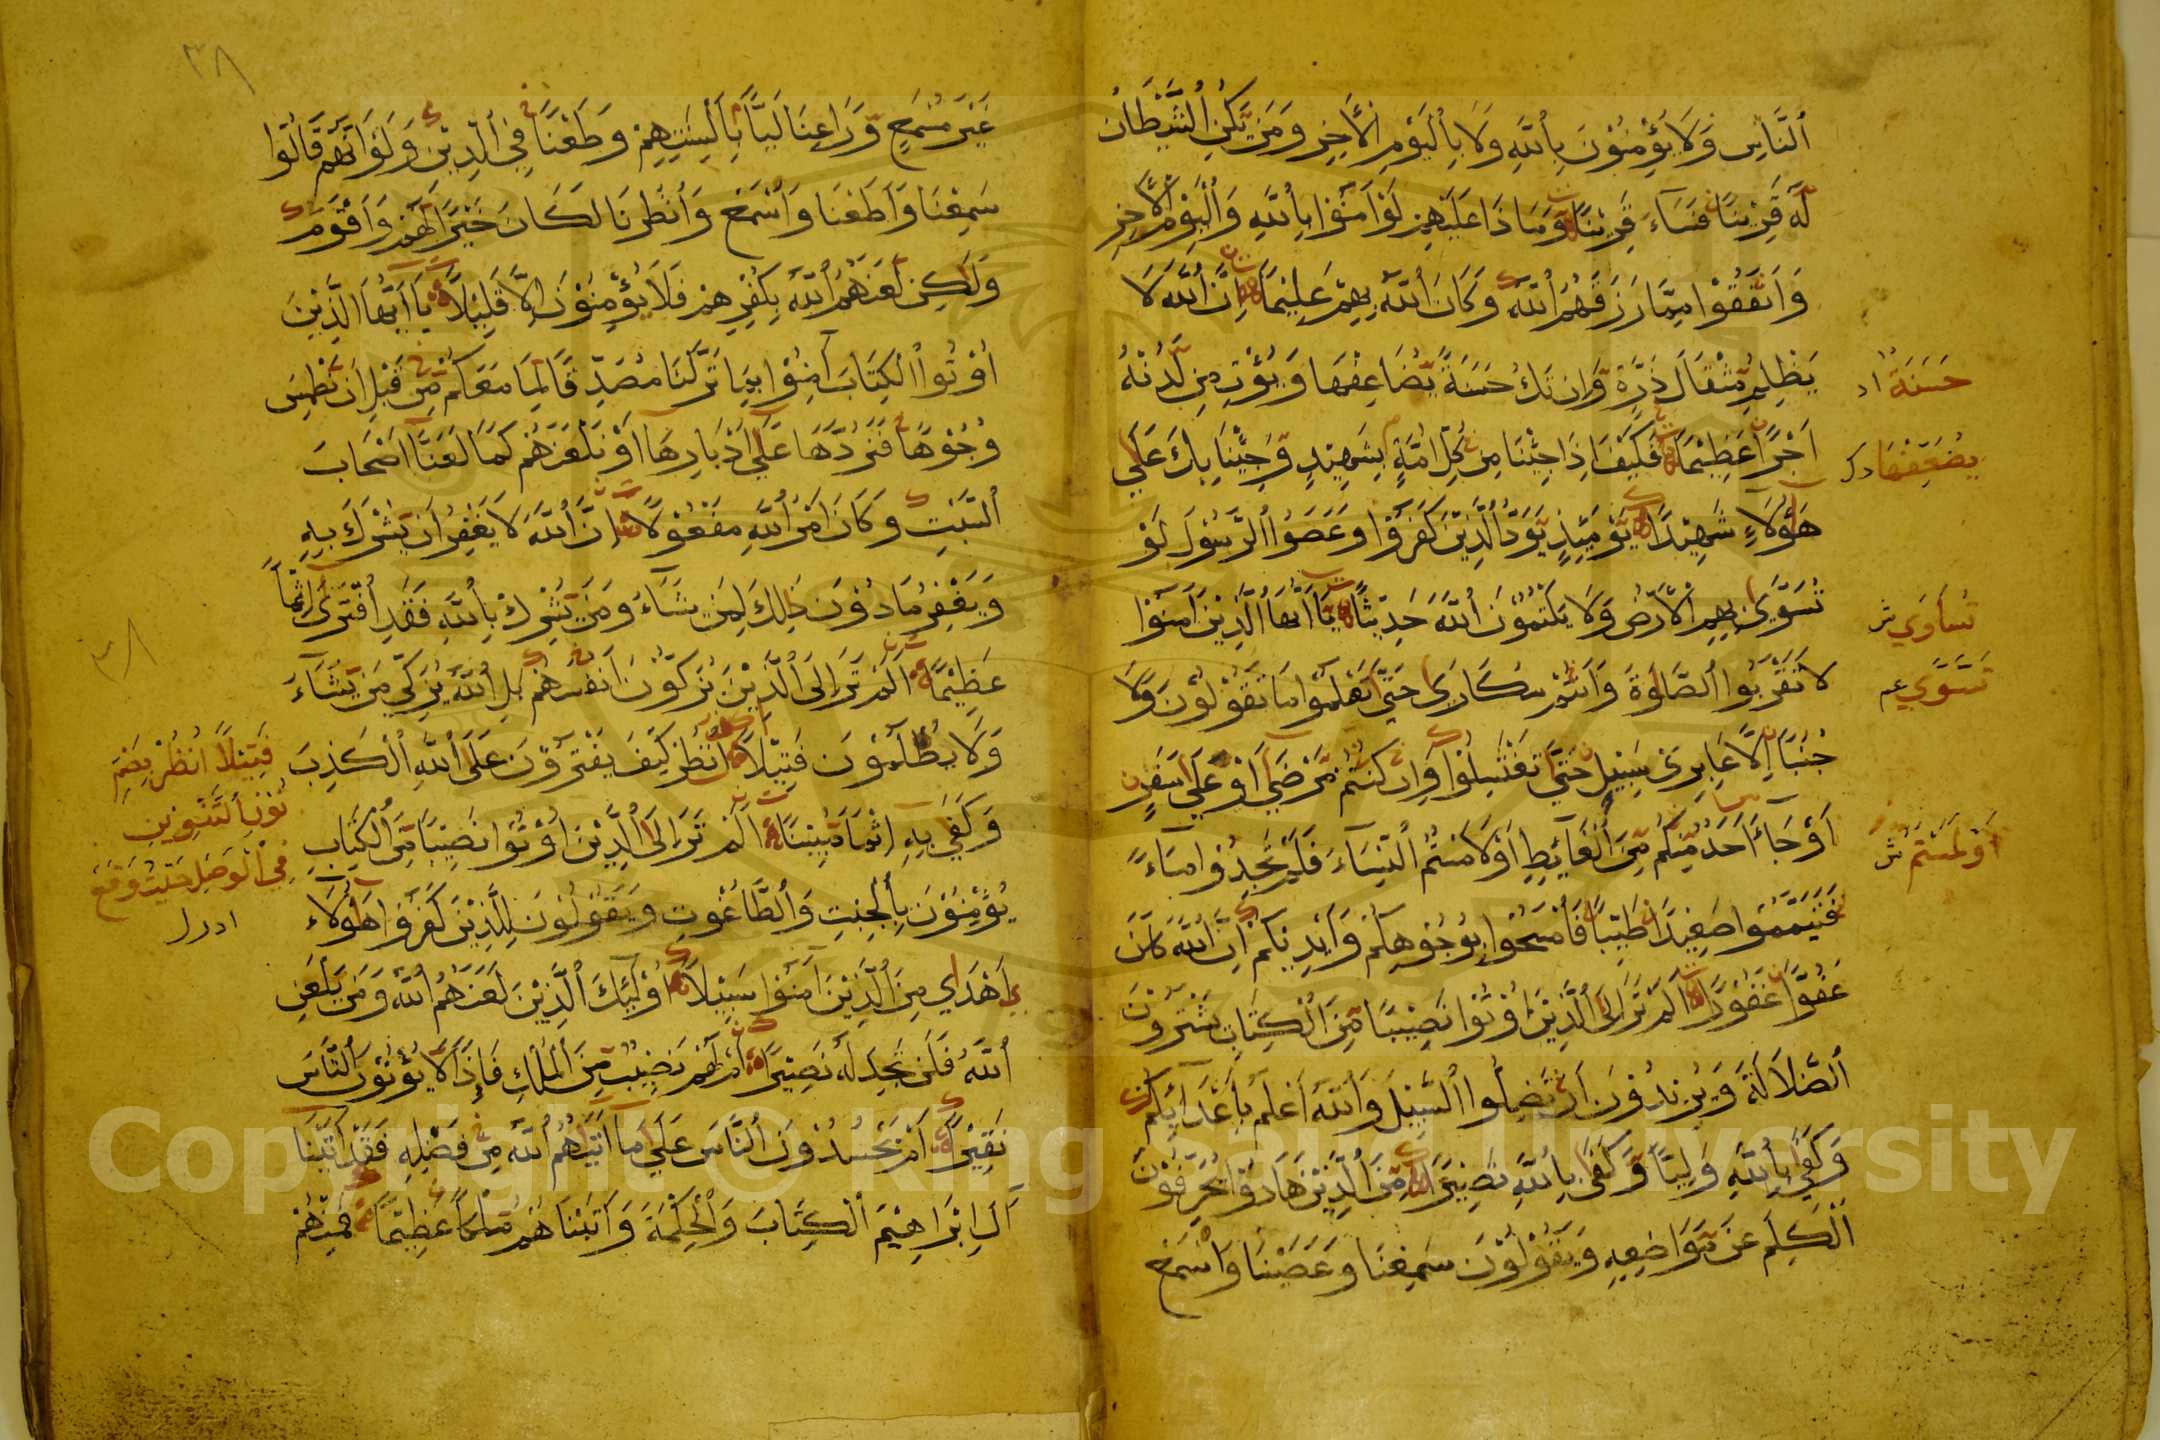 ٱلنَّاسِ وَلَا يُؤْمِنُوْنَ بِٱللَّهِ وَلَا بِٱلْيَوْمِ ٱلْآخِرِ وَمَنْ يَكُنِ ٱلشَّيْطَانُ
لَهُ قَرِيْنًا فَسَآءَ قَرِيْنًا وَمَاذَا عَلَيْهِمْ لَوْ آمَنُوْا بِٱللَّهِ وَٱلْيَوْمِ ٱلْآخِرِ
وَأَنْفَقُوْا مِمَّا رَزَقَهُمُ ٱللَّهُ وَكَانَ ٱللَّهُ بِهِمْ عَلِيْمًا إِنَّ ٱللَّهَ لَا
يَظْلِمُ مِثْقَالَ ذَرَّةٍ وَإِنْ تَكُ حَسَنَةً يُضَاعِفْهَا وَيُؤْتِ مِنْ لَدُنْهُ
حَسَنَةٌ اد
أَجْرًا عَظِيْمًا فَكَيْفَ إِذَا جِئْنَا مِنْ كُلِّ أُمَّةٍ بِشَهِيْدٍ وَجِئْنَا بِكَ عَلَى
يُضَعِّفْهَا دك
هَؤُلَاءِ شَهِيْدًا يَوْمَئِذٍ يَوَدُّ ٱلَّذِيْنَ كَفَرُوْا وَعَصَوُا ٱلرَّسُوْلَ لَوْ
تُسَوَّى بِهِمُ ٱلْأَرْضُ وَلَا يَكْتُمُوْنَ ٱللَّهَ حَدِيْثًا يَا أَيُّهَا ٱلَّذِيْنَ آمَنُوْا
تَسَاوَي ش
لَا تَقْرَبُوا ٱلصَّلٰوةَ وَأَنْتُمْ سُكَارَى حَتَّى تَعْلَمُوْا مَا تَقُوْلُوْنَ وَلَا
تَسَّوَّي عم
جُنُبًا إِلَّا عَابِرِيْ سَبِيْلٍ حَتَّى تَغْتَسِلُوْا وَإِنْ كُنْتُمْ مَرْضَى أَوْ عَلَى سَفَرٍ
أَوْ جَآءَ أَحَدٌ مِنْكُمْ مِنَ ٱلْغَآئِطِ أَوْ لَامَسْتُمُ ٱلنِّسَآءَ فَلَمْ تَجِدُوْا مَآءً
أَوْ لَمَسْتُمُ ش
فَتَيَمَّمُوْا صَعِيْدًا طَيِّبًا فَٱمْسَحُوْا بِوُجُوْهِكُمْ وَأَيْدِيْكُمْ إِنَّ ٱللَّهَ كَانَ
عَفُوًّا غَفُوْرًا أَلَمْ تَرَ إِلَى ٱلَّذِيْنَ أُوْتُوْا نَصِيْبًا مِنَ ٱلْكِتَابِ يَشْتَرُوْنَ
ٱلضَّلَالَةَ وَيُرِيْدُوْنَ أَنْ تَضِلُّوا ٱلسَّبِيْلَ وَٱللَّهُ أَعْلَمُ بِأَعْدَآئِكُمْ
وَكَفَى بِٱللَّهِ وَلِيًّا وَكَفَى بِٱللَّهِ نَصِيْرًا مِنَ ٱلَّذِيْنَ هَادُوْا يُحَرِّفُوْنَ
ٱلْكَلِمَ عَنْ مَوَاضِعِهِ وَيَقُوْلُوْنَ سَمِعْنَا وَعَصَيْنَا وَٱسْمَعْ
٣٨
غَيْرَ مُسْمَعٍ وَرَاعِنَا لَيًّا بِأَلْسِنَتِهِمْ وَطَعْنًا فِي ٱلدِّيْنِ وَلَوْ أَنَّهُمْ قَالُوْا
سَمِعْنَا وَأَطَعْنَا وَٱسْمَعْ وَٱنْظُرْنَا لَكَانَ خَيْرًا لَهُمْ وَأَقْوَمَ
وَلَكِنْ لَعَنَهُمُ ٱللَّهُ بِكُفْرِهِمْ فَلَا يُؤْمِنُوْنَ إِلَّا قَلِيْلًا يَا أَيُّهَا الَّذِيْنَ
أُوْتُوا ٱلْكِتَابَ آمِنُوْا بِمَا نَزَّلْنَا مُصَدِّقًا لِمَا مَعَكُمْ مِنْ قَبْلِ أَنْ نَطْمِسَ
وُجُوْهًا فَنَرُدَّهَا عَلَى أَدْبَارِهَا أَوْ نَلْعَنَهُمْ كَمَا لَعَنَّا أَصْحَابَ
ٱلسَّبْتِ وَكَانَ أَمْرُ ٱللَّهِ مَفْعُوْلًا إِنَّ ٱللَّهَ لَا يَغْفِرُ أَنْ يُشْرَكَ بِهِ
وَيَغْفِرُ مَا دُوْنَ ذَلِكَ لِمَنْ يَشَآءُ وَمَنْ يُشْرِكْ بِٱللَّهِ فَقَدِ ٱفْتَرَى إِثْمًا
٣٨
عَظِيْمًا أَلَمْ تَرَ إِلَى ٱلَّذِيْنَ يُزَكُّوْنَ أَنْفُسَهُمْ بَلِ ٱللَّهُ يُزَكِّي مَنْ يَشَآءُ
وَلَا يُظْلَمُوْنَ فَتِيْلًا ٱنْظُرْ كَيْفَ يَفْتَرُوْنَ عَلَى ٱللَّهِ ٱلْكَذِبَ
فَتِيْلًا ٱنْظُرْ بِضَمِّ
نُوْنِ ٱلتَّنْوِيْنِ
فِي ٱلْوَصْلِ حَيْثُ وَقَعَ
ادرل
وَكَفَى بِهِ إِثْمًا مُبِيْنًا أَلَمْ تَرَ إِلَى ٱلَّذِيْنَ أُوْتُوْا نَصِيْبًا مِنَ ٱلْكِتَابِ
يُؤْمِنُوْنَ بِٱلْجِبْتِ وَٱلطَّاغُوْتِ وَيَقُوْلُوْنَ لِلَّذِيْنَ كَفَرُوْا هَؤُلَاءِ
أَهْدَى مِنَ ٱلَّذِيْنَ آمَنُوْا سَبِيْلًا أُوْلَئِكَ ٱلَّذِيْنَ لَعَنَهُمُ ٱللَّهُ وَمَنْ يَلْعَنِ
ٱللَّهُ فَلَنْ تَجِدَ لَهُ نَصِيْرًا أَمْ لَهُمْ نَصِيْبٌ مِنَ ٱلْمُلْكِ فَإِذًا لَا يُؤْتُوْنَ ٱلنَّاسَ
نَقِيْرًا أَمْ يَحْسُدُوْنَ ٱلنَّاسَ عَلَى مَا آتَاهُمُ ٱللَّهُ مِنْ فَضْلِهِ فَقَدْ آتَيْنَا
آلَ إِبْرَاهِيْمَ ٱلْكِتَابَ وَٱلْحِكْمَةَ وَآتَيْنَاهُمْ مُلْكًا عَظِيْمًا فَمِنْهُمْ
Copyright © King Saud University